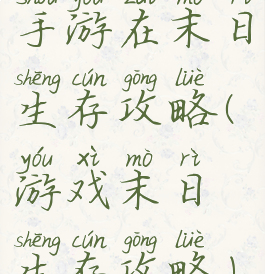 shǒu yóu zài mò rì
手游在末日
shēng cún gōng lüè
生存攻略(
yóu xì mò rì
游戏末日
shēng cún gōng lüè
生存攻略)